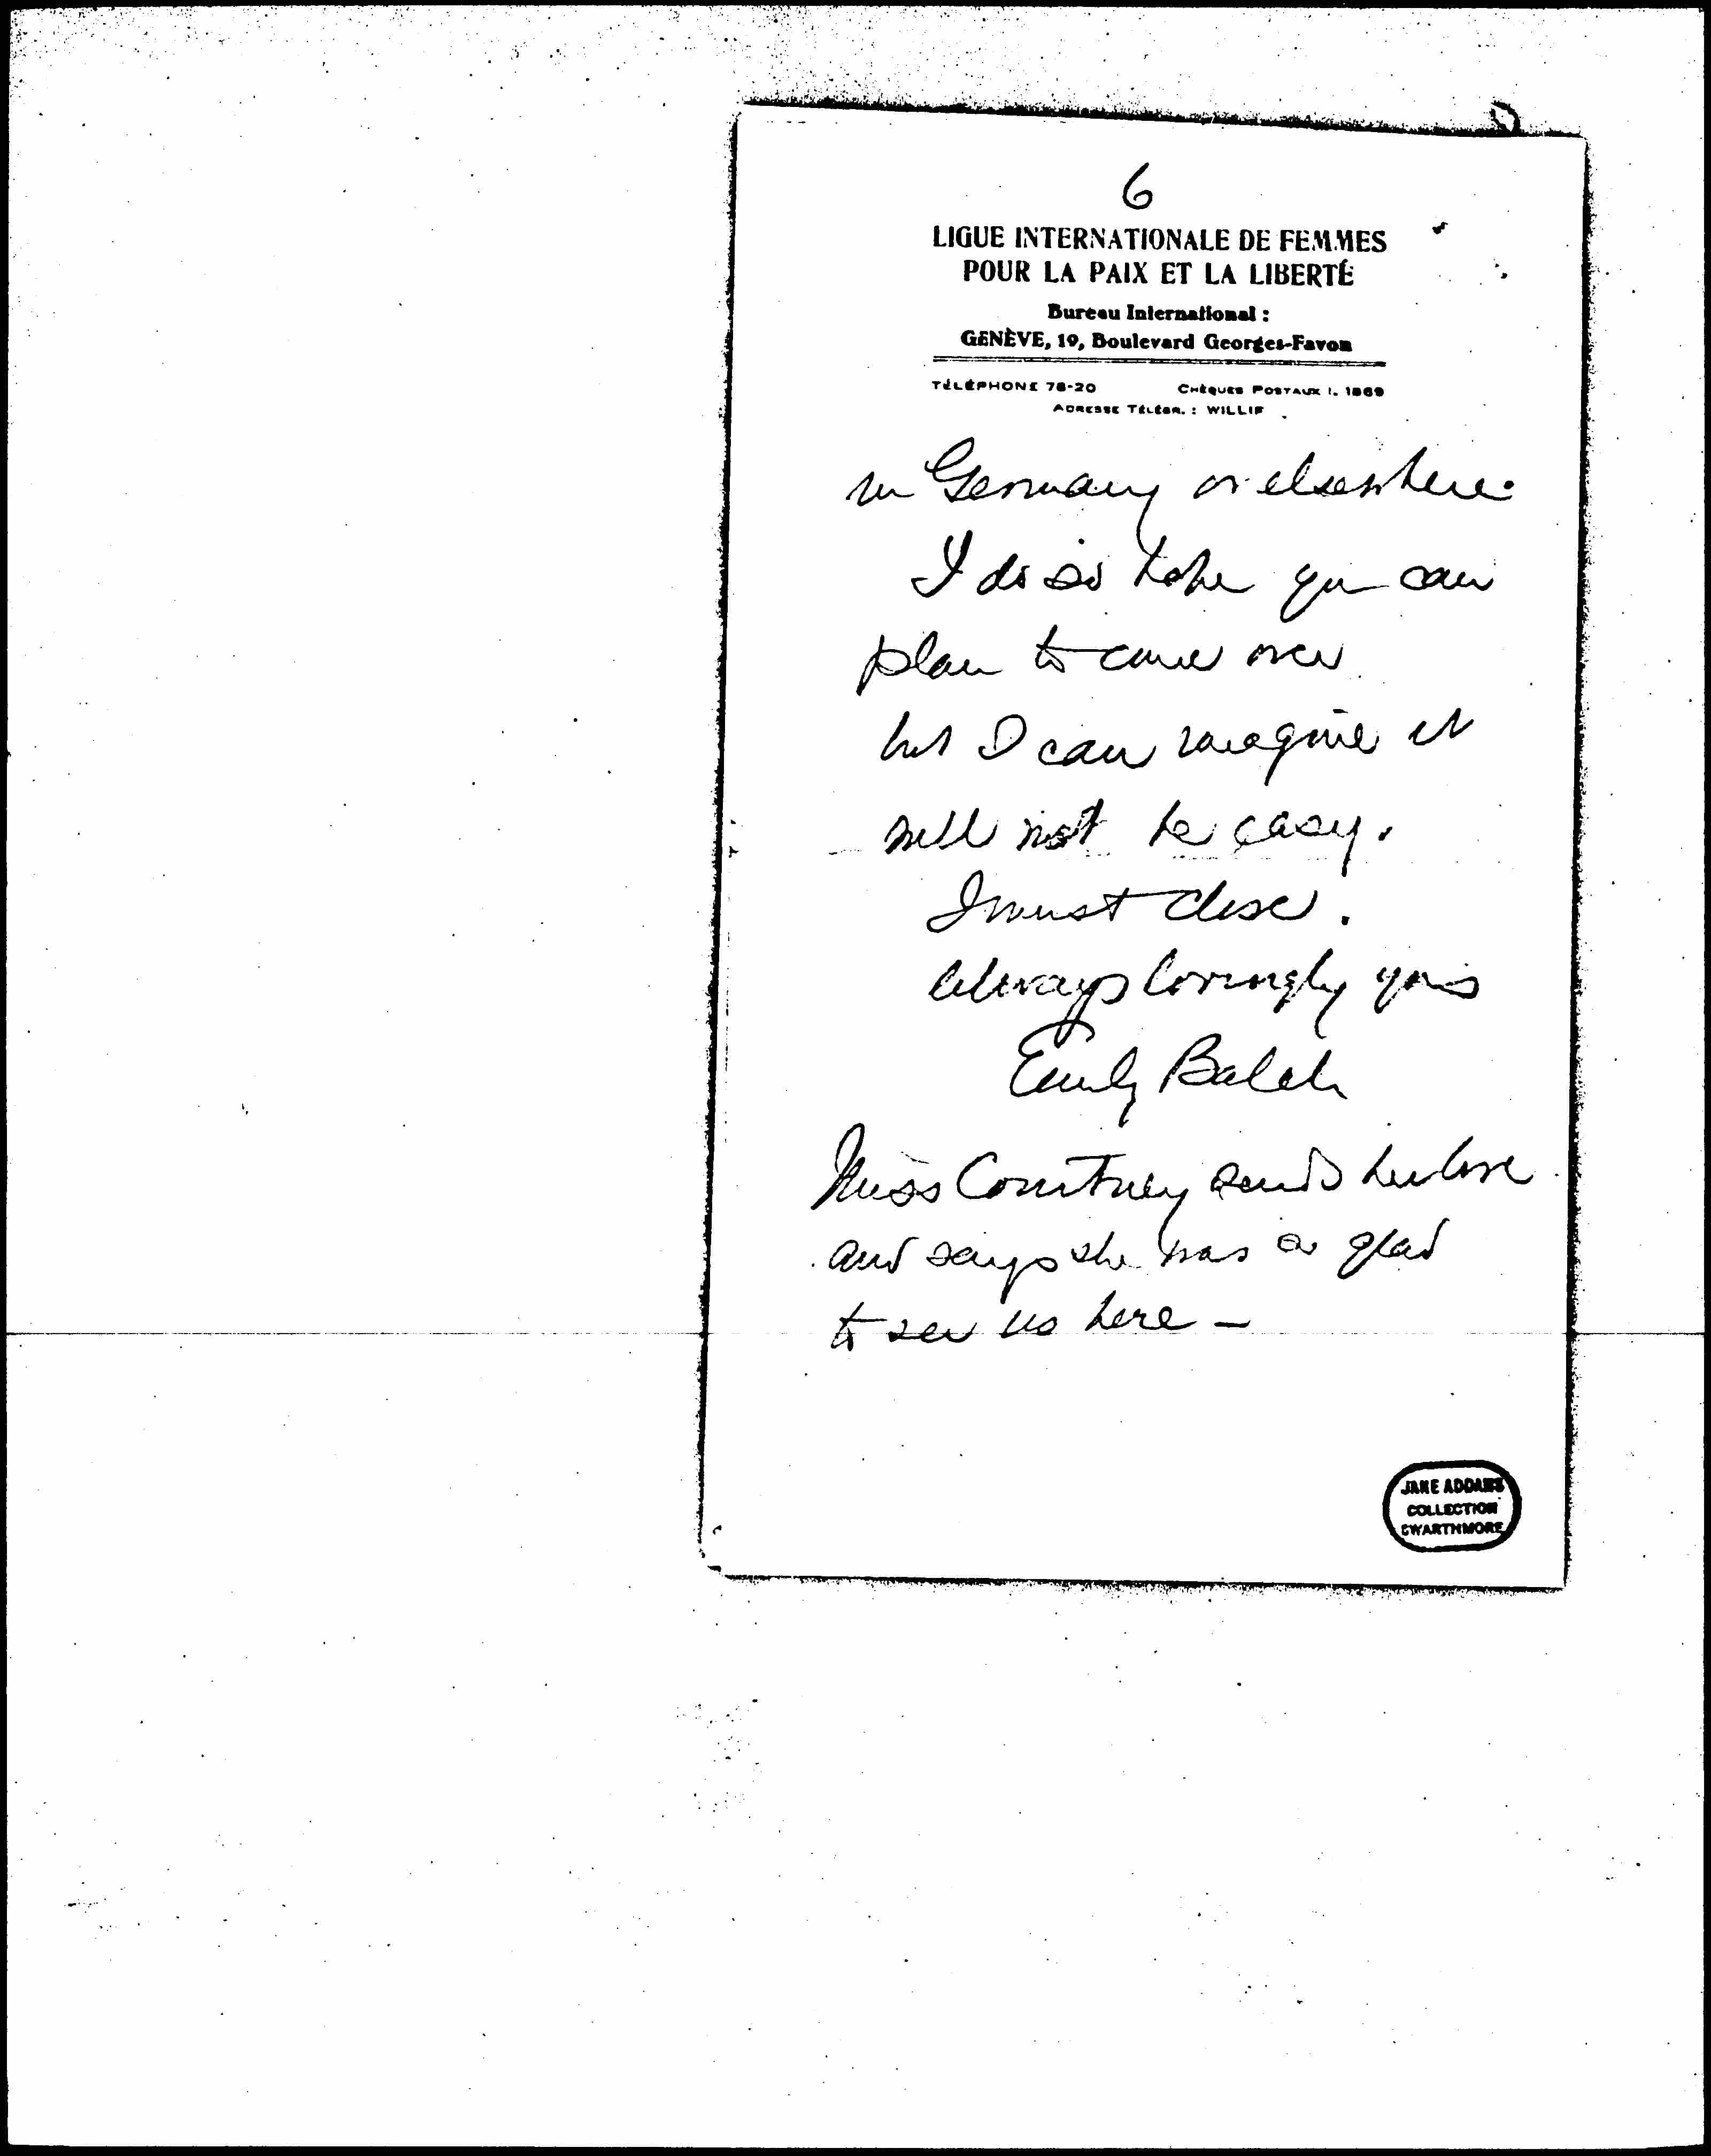 6
LIGUE INTERNATIONALE DE FEMMES
POUR LA PAIX ET LA LIBERTÉ
Bureau International :
GENÈVE, 19, Boulevard Georges-Favon
TÉLÉPHONE 78-20 CHÈQUES POSTAUX I. 1869
ADRESSE TÉLÉGR. : WILLIF
in Germany or elsewhere.
I do so hope you can
plan to come over
but I can imagine it
will not be easy.
I must close.
Always lovingly yours
Emily Balch
Miss Courtney sends her love
and says she was so glad
to see us here -
JANE ADDAMS
COLLECTION
SWARTHMORE